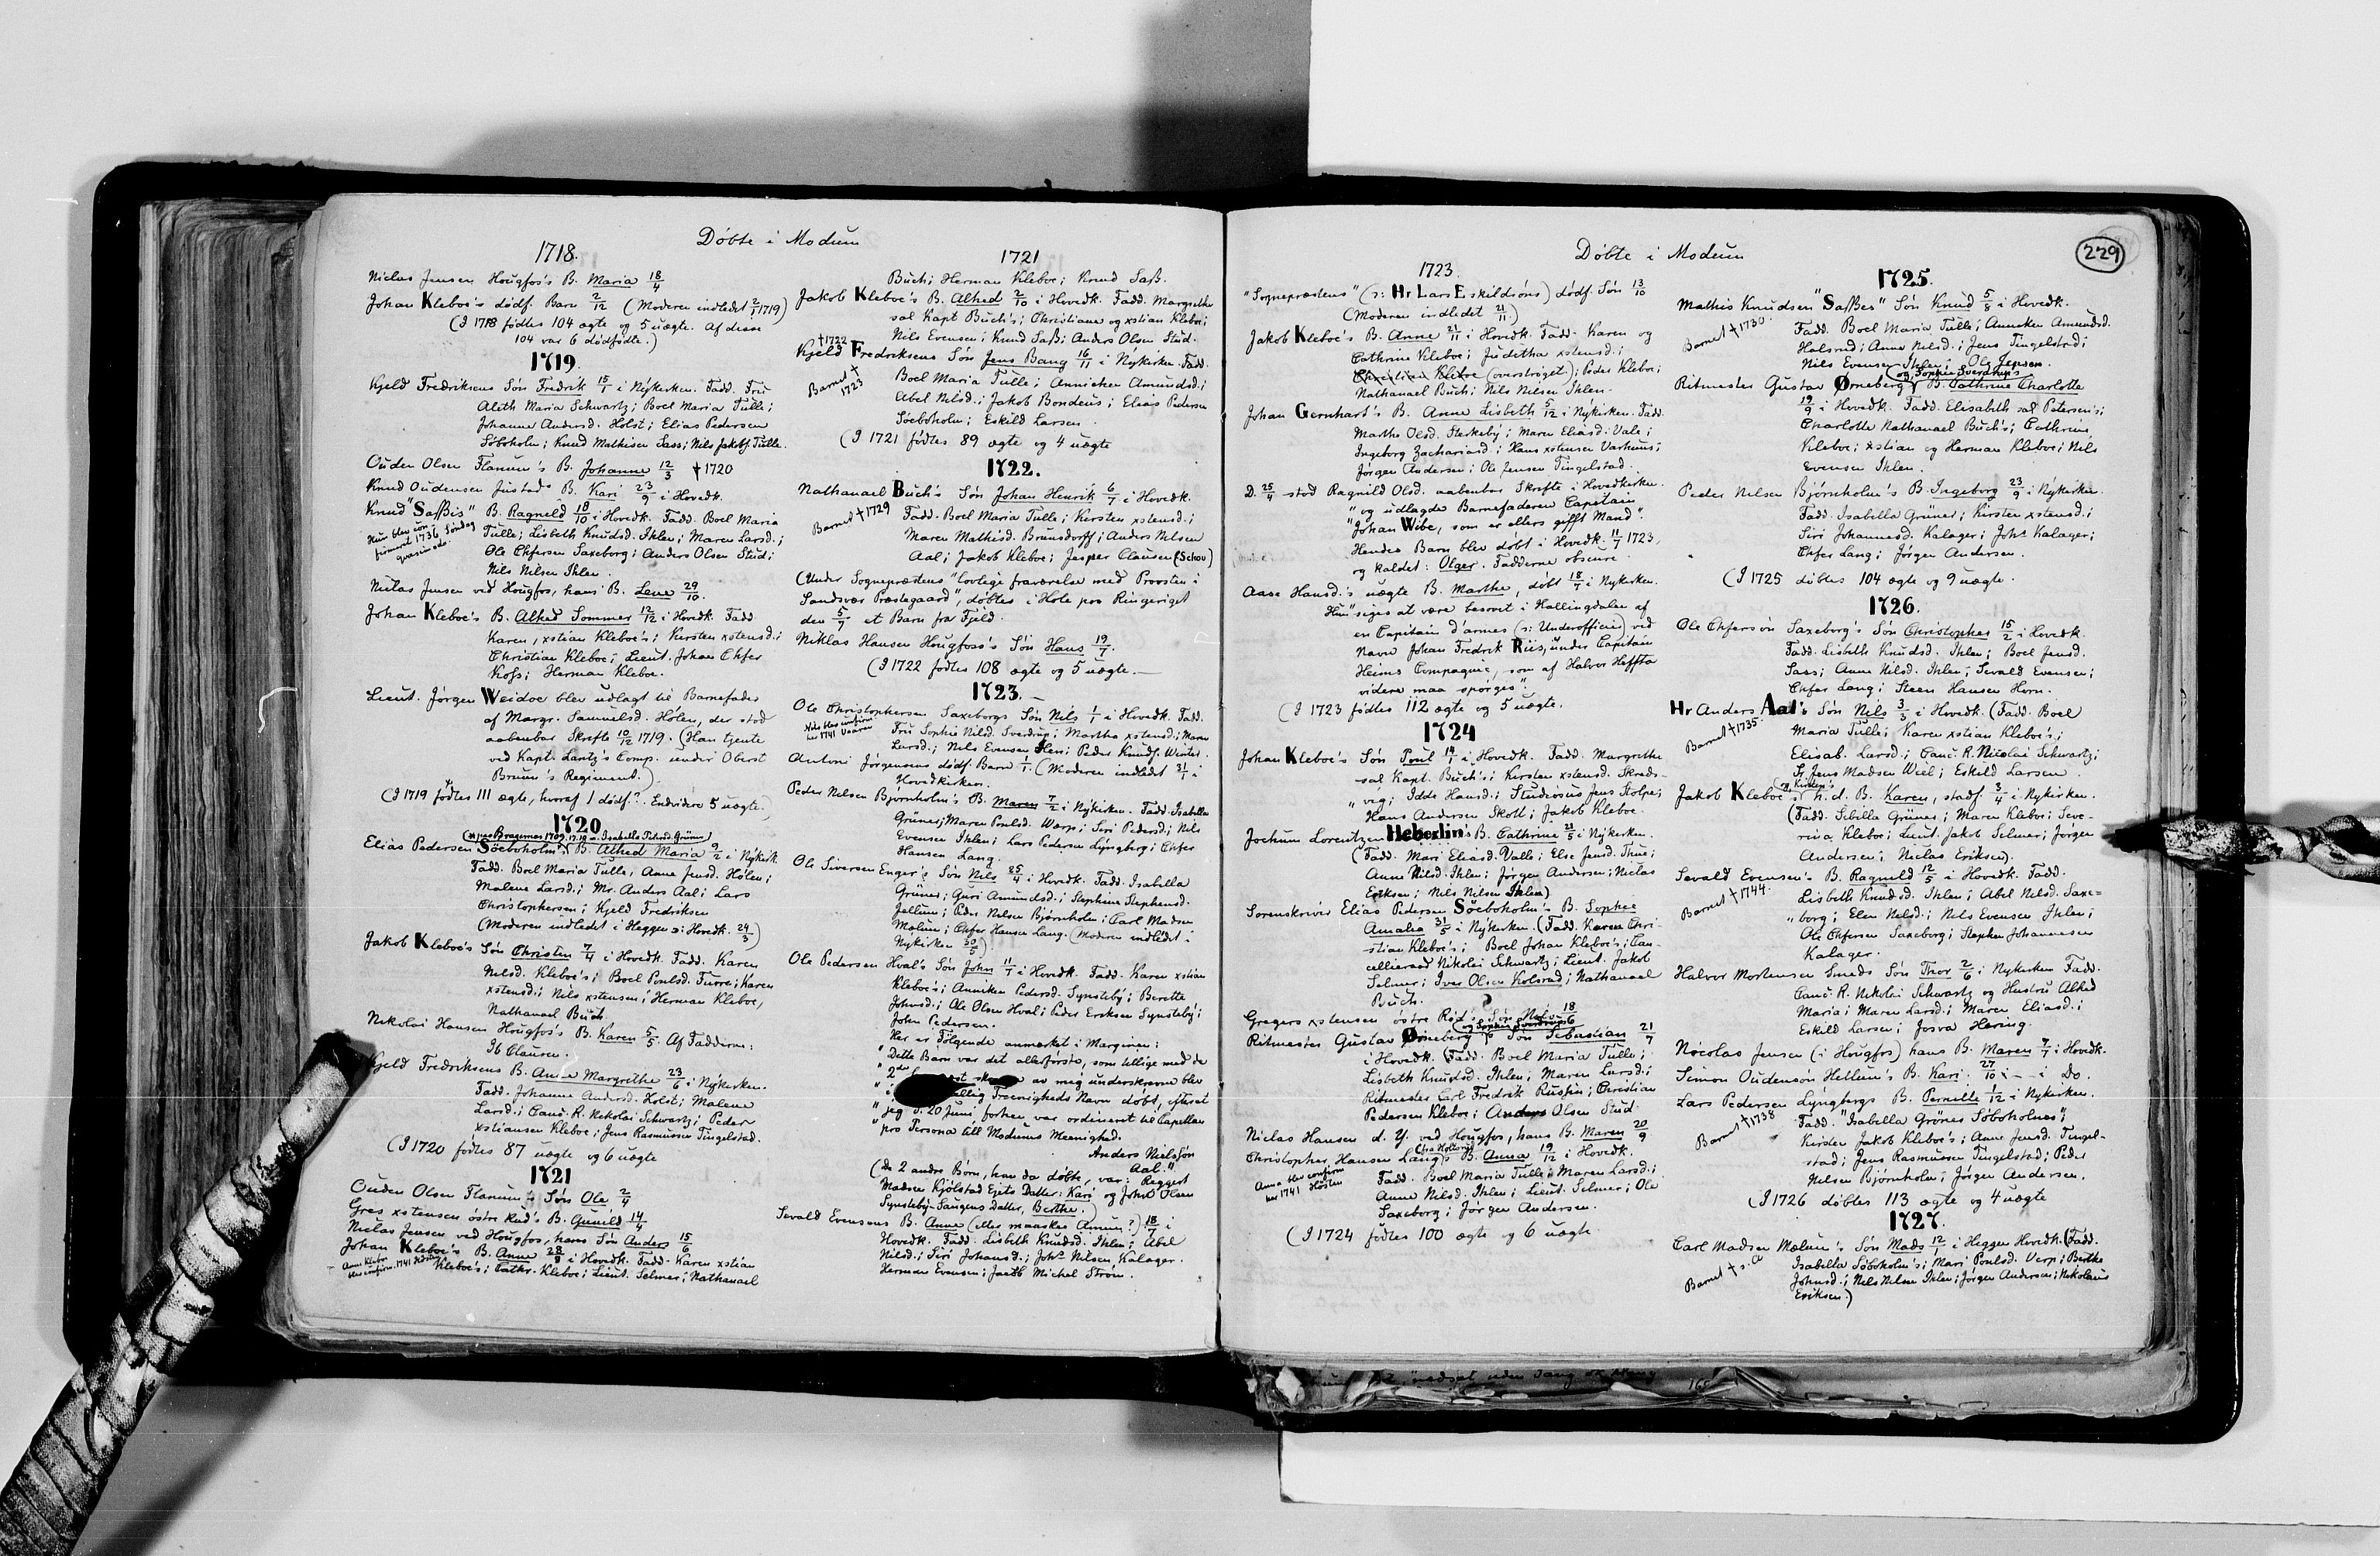 Døbte i Modum
1718.
Niclas Jensen Hougfos's B. Maria 18/4
Johan Kleboe's dødf. Barn 2/12 (Moderen indledet 2/1 1719)
(I 1718 fødtes 104 ægte og 5 uægte. Af disse
104 var 6 dødfødte.)
1719.
Kjeld Fredriksens Søn Fredrik 15/1 i Nykirken. Fadd. Fru
Aleth Maria Schwartz; Boel Maria Tulle;
Johanne Andersd. Holst; Elias Pedersen
Söboholm; Knud Mathisen Sass; Nils Jakobs. Tulle.
Ouden Olsen Flannum's B. Johanne 12/3 † 1720
Knud Oudensen Justads B. Kari 23/9 i Hovedk.
Knud "Saßis" B. Ragneld 18/10 i Hovedk. Fadd. Boel Maria
Hun blev con-
firmeret 1736 Søndag
quasimodo.
Tulle; Lisbeth Knudsd. Ihlen; Maren Larsd.;
Ole Chfersen Saxeborg; Anders Olsen Stud;
Nils Nilsen Ihlen.
Niclas Jensen ved Hougfos, hans B. Lene 29/10.
Johan Kleboe's B. Alhed Sommer 12/12 i Hovedk. Fadd
Karen, xstian Kleboe's; Kirsten xstensd.;
Christian Kleboe; Lieut. Johan Chfer
Koss; Herman Kleboe.
Lieut. Jørgen Weidoe blev udlagt til Barnefader
af Margr. Samuelsd. Hølen, der stod
aabenbar Skrifte 10/12 1719. (Han tjente
ved Kapt. Lantz's Comp. under Oberst
Bruun's Regiment.)
(I 1719 fødtes 111 ægte, hvoraf 1 dødf.?. Endvidere 5 uægte.)
1720
Elias Pedersen Söeboholm's B. Alhed Maria 9/2 i Nykirk.
Fadd. Boel Maria Tulle, Anne Jensd. Hølen;
Malene Larsd.; Mr. Anders Aal; Lars
Christophersen; Kjeld Fredriksen
(Moderen indledet i Heggen ɔ: Hovedk. 24/3)
Jakob Kleboe's Søn Christen 7/4 i Hovedk. Fadd. Karen
Nilsd. Kleboe's; Boel Poulsd. Furre; Karen
xstensd.; Nils xstensen; Herman Kleboe,
Nathanael Buch.
Nikolai Hansen Hougfos's B. Karen 5/5. Af Fadderne:
Ib Clausen.
Kjeld Fredriksens B. Anne Margrethe 23/6 i Nykirken.
Fadd. Johanne Andersd. Holst; Malene
Larsd.; Canc. R. Nikolai Schwartz; Peder
xstiansen Kleboe; Jens Rasmussen Tingelstad.
(I 1720 fødtes 87 uægte og 6 uægte
1721
Ouden Olsen Flannum's Søn Ole 2/4
Gres xstensen østre Rud's B. Gunild 14/4
Niclas Jensen ved Hougfos, hans Søn Anders 15/6
Johan Kleboe's B. Anne 28/9 i Hovedk. Fadd. Karen xstian
Anne Kleboe
blev confirm. 1741 Høsten
Kleboe's; Cathr. Kleboe; Lieut. Selmer; Nathanael
1721
Buch; Herman Kleboe; Knud Saß.
Jakob Kleboe's B. Alhed 2/10 i Hovedk. Fadd. Margrethe
sal Kapt Buch's; Christiane og xstian Kleboe;
Nils Evensen; Knud Saß; Anders Olsen Stud.
† 1722
Kjeld Fredriksens Søn Jens Bang 16/11 i Nykirken. Fadd.
Barnet † 1723
Boel Maria Tulle; Annichen Amundsd.;
Abel Nilsd.; Jakob Bondeus; Elias Pedersen
Söeboholm; Eskild Larsen.
(I 1721 fødtes 89 ægte og 4 uægte
1722.
Nathanael Buch's Søn Johan Henrik 6/1 i Hovedk.
Barnet † 1729
Fadd. Boel Maria Tulle; Kirsten xstensd.;
Maren Mathisd. Brunsdorff; Anders Nilsen
Aal; Jakob Kleboe; Jesper Clausen (Schou)
(Under Sognepræstens "lovlige fraværelse med Provsten i
Sandsvær Præstegaard", døbtes i Hole pro Ringeriget
den 5/7 et Barn fra Fjeld.
Niklas Hansen Hougfoss's Søn Hans 19/7.
(I 1722 fødtes 108 ægte og 5 uægte.
1723.
Ole Christophersen Saxeborgs Søn Nils 1/1 i Hovedk. Fadd.
Nils blev confirm-
eret 1741 Vaaren
Fru Sophie Nilsd. Sverdrup; Martha xstensd.; Maren
Larsd.; Nils Evensen Ihlen; Peder Knuds. Winter.
Antoni Jörgensens dödf. Barn 1/1. (Moderen indledt 31/1 i
Hovedkirken.
Peder Nilsen Bjørnholm's B. Maren 7/2 i Nykirken. Fadd. Isabella
Grüner; Maren Poulsd. Wærp; Siri Pedersd.; Nils
Evensen Ihlen; Lars Pedersen Lyngberg; Chfer
Hansen Lang.
Ole Siversen Enger's Søn Nils 25/4 i Hovedk. Fadd. Isabella
Grüner; Guri Amundsd.; Stephine Stephensd.
Jellum; Peder Nilsen Bjørnholm; Carl Madsen
Mælum; Chfer Hansen Lang. (Moderen indledet i
Nykirken 30/5)
Ole Pedersen Hval's Søn John 11/7 i Hovedk. Fadd. Karen xstian
Kleboe's; Anniken Pedersd. Synsteby; Berette
Johnsd.; Ole Olsen Hval; Peder Eriksen Synsteby;
John Pedersen.
Her er Følgende anmærket i Marginen:
"Dette Barn var det allerførste, som tillige med de
av meg underskrevne blev
Treenigheds Navn døbt, efterat
"jeg d. 20 Juni forhen var ordineret til Capellan
"pro Persona till Modums Meenighed.
Anders Nielsøn
Aal."
(De 2 andre Børn, han da døbte, var: Reggert
Madsen Kjölstad Ejets Datter: Kari og John Olsen
Synsteby-Saugens Datter, Berthe.)
Sevald Evensens B. Anne (eller maaskee Amun?) 18/7 i
Hovedk. Fadd. Lisbeth Knudsd. Ihlen; Abel
Nilsd.; Siri Johansd.; Johs Nilsen Kalager.
Herman Evensen; Jacob Michel Strøm.
Døbte i Modum
229
1723.
"Sognepræstens" (ɔ: Hr Lars Eskildsöns) dödf. Søn 13/10
(Moderen indledet 21/11)
Jakob Kleboe's B. Anne 21/11 i Hovedk. Fadd. Karen og
Cathrine Kleboe; Juditha xstensd.;
Christian Kleboe (overstrøget); Peder Kleboe;
Nathanael Buch; Nils Nilsen Ihlen.
Johan Gernhart's B. Anne Lisbeth 5/12 i Nykirken. Fadd.
Marthe Olsd. Sterkeby; Maren Eliasd. Vale;
Ingeborg Zachariasd.; Hans xstensen Varhuus;
Jørgen Andersen; Ole Jensen Tingelstad.
D. 25/4 stod Ragnild Olsd. aabenbar Skrifte i Hovedkirken.
"og udlagde Barnefaderen Capitain
"Johan Wibe, som er ellers gifft Mand".
Hendes Barn blev døbt i Hovedk. 11/7 1723,
og kaldet: Olger. Fadderne obscure
Aase Hansd.'s uægte B. Marthe, döbt 18/7 i Nykirken.
Hun "siges at være besovet i Hallingdalen af
en Capitain d'armes (ɔ: Underofficier) ved
Navn Johan Fredrik Riis, under Capitain
Heims Compagnie, som af Halvor Heffta
videre maa spörges".
(I 1723 fødtes 112 ægte og 5 uægte.
1724
Johan Kleboe's Søn Poul 14/1 i Hovedk. Fadd. Margrethe
sal Kapt. Buch's; Kirsten xstensd. Skreds-
"vig; Idde Hansd.; Studiosus Jens Stolpe;
Hans Andersen Skott; Jakob Kleboe.
Jochum Lorentzen Heberlin's B. Cathrine 21/5 i Nykirken.
(Fadd. Mari Eliasd. Valle; Else Jensd. Thue;
Anne Nilsd. Ihlen; Jørgen Andersen; Niclas
Eriksen; Nils Nilsen Ihlen)
Sorenskriver Elias Pedersen Söeboholm's B. Sophie
Amalia 31/5 i Nykirken. (Fadd. Karen Chri-
stian Kleboe's; Boel Johan Kleboe's; Can-
cellieraad Nikolai Schwartz; Lieut. Jakob
Selmer; Iver Olsen Kolsrud; Nathanael
Buch.
Gregers xstensen østre Rud's Søn Nils 18/6
Ritmester Gustav Ørneberg's (og Sophie Sverdrups) Søn Sebastian 21/7
i Hovedk. (Fadd. Boel Maria Tulle;
Lisbeth Knudsd. Ihlen; Maren Larsd.;
Ritmester Carl Fredrik Rusfin; Christian
Pedersen Kleboe; Anders Olsen Stud.
Niclas Hansen d. Y. ved Hougfos, hans B. Maren 20/9
Christopher Hansen Lang's B. Anna 19/12 i Hovedk.
Anna blev confirm-
eret 1741 Høsten
Fadd. Boel Maria Tulle; Maren Larsd.;
Anne Nilsd. Ihlen; Lieut. Selmer; Ole
Saxeborg; Jørgen Andersen.
(I 1724 fødtes 100 ægte og 6 uægte
1725.
Mathis Knudsen "Saßes" Søn Knud 5/8 i Hovedk.
Barnet † 1730.
Fadd. Boel Maria Tulle; Anneken Amundsd.
Halsrud; Anne Nilsd.; Jens Tingelstad;
Nils Evensen Ihlen; Ole Jensen.
Ritmester Gustav Ørneberg's (og Sophie Sverdrups) B. Cathrine Charlotte
19/9 i Hovedk. Fadd. Elisabeth sal Petersen's;
Charlotte Nathanael Buch's; Cathrine
Kleboe; xstian og Herman Kleboe; Nils
Evensen Ihlen.
Peder Nilsen Bjørnholm's B. Ingeborg 23/9 i Nykirken.
Fadd. Isabella Grüner; Kirsten xstensd.;
Siri Johannesd. Kalager; Johs Kalager;
Chfer Lang; Jørgen Andersen.
(I 1725 døbtes 104 ægte og 9 uægte.
1726.
Ole Chfersön Saxeborg's Søn Christopher 15/2 i Hovedk.
Fadd. Lisbeth Knudsd. Ihlen; Boel Jensd.
Sass; Anne Nilsd. Ihlen; Sevald Evensen;
Chfer Lang; Steen Hansen Horn.
Hr Anders Aal's Søn Nils 3/3 i Hovedk. (Fadd. Boel
Barnet † 1735.
Maria Tulle; Karen xstian Kleboe's;
Elisab. Larsd.; Canc. R. Nicolai Schwartz;
Sr Jens Madsen Wiel; Eskild Larsen.
Jakob Kleboe's (og Kirsten's) h. d. B. Karen, stadf. 3/4 i Nykirken.
(Fadd. Sibilla Grüner; Maren Kleboe; Seve-
rina Kleboe; Lieut. Jakob Selmer; Jørgen
Andersen; Niclas Eriksen).
Sevald Evensen's B. Ragnild 12/5 i Hovedk. Fadd.
Barnet † 1744.
Lisbeth Knudsd. Ihlen; Abel Nilsd. Saxe=
"borg; Elen Nilsd.; Nils Evensen Ihlen;
Ole Chfersen Saxeborg; Stephen Johannesen
Kalager.
Halvor Mortensen Smeds Søn Thor 2/6 i Nykirken Fadd.
Canc. R. Nikolai Schwartz og Hustru Alhed
Maria; Maren Larsd.; Maren Eliasd.;
Eskild Larsen; Josva Hering.
Nicolas Jensen (i Hougfos) hans B. Maren 7/7 i Hovedk.
Simon Oudensön Hellum's B. Kari 27/10 i — i Do.
Lars Pedersen Lyngbergs B. Pernille 1/12 i Nykirken.
Barnet † 1738
Fadd. "Isabella Grönes Söboholmes";
Kirsten Jakob Kleboe's; Anne Jensd. Tingel-
stad; Jens Rasmussen Tingelstad; Peder
Nilsen Bjørnholm; Jørgen Andersen.
(I 1726 døbtes 113 ægte og 4 uægte
1727.
Carl Madsen Mælum's Søn Mads 12/1 i Heggen Hovedk. (Fadd.
Barnet † s. A
Isabella Söboholm's; Mari Poulsd. Verp; Berthe
Johnsd.; Nels Nilsen Ihlen; Jørgen Andersen; Nikolaus
Eriksen.)